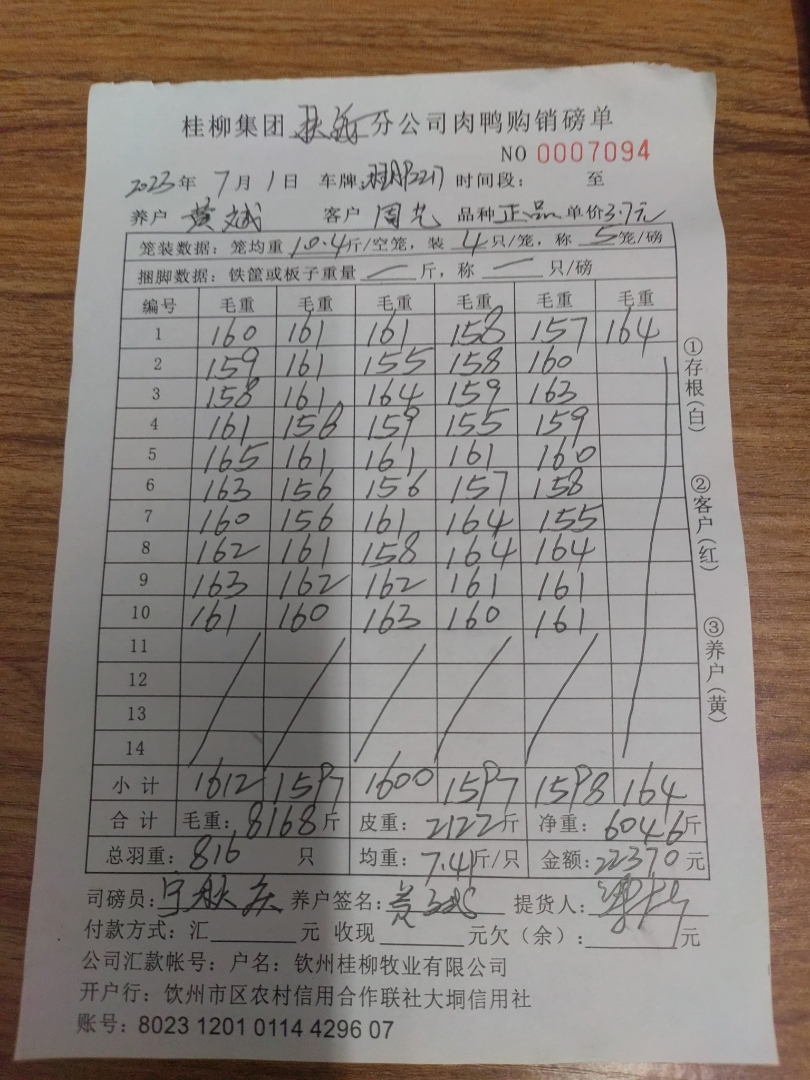 桂柳集团 分公司肉鸭购销磅单
NO 0007094
2023年 7月1日 车牌: 时间段: 至
养户 黄斌 客户 周 品种 正品 单价 3.7元
笼装数据: 笼均重 10.4斤/空笼, 装 4只/笼, 称 5笼/磅
捆脚数据: 铁筐或板子重量 — 斤, 称 — 只/磅
编号 毛重 毛重 毛重 毛重 毛重 毛重
1 160 161 161 158 157 164
2 159 161 155 158 160
3 158 161 164 159 163
4 161 158 159 155 159
5 165 161 161 161 160
6 163 156 156 157 158
7 160 156 161 164 155
8 162 161 158 164 164
9 163 162 162 161 161
10 161 160 163 160 161
11
12
13
14
小计 1612 1597 1600 1597 1598 164
合计 毛重: 8168斤 皮重: 2122斤 净重: 6046斤
总羽重: 816 只 均重: 7.41斤/只 金额: 22370元
司磅员: 养户签名: 黄斌 提货人:
付款方式: 汇 元 收现 元欠(余): 元
公司汇款帐号: 户名: 钦州桂柳牧业有限公司
开户行: 饮州市区农村信用合作联社大垌信用社
账号: 8023 1201 0114 4296 07
①存根(白)
②客户(红)
③养户(黄)